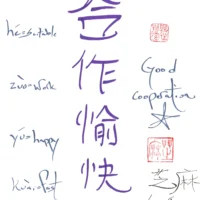 合作愉快
hé=suitable
zuò=work
yú=happy
kuài=fast
Good
cooperation
芝麻